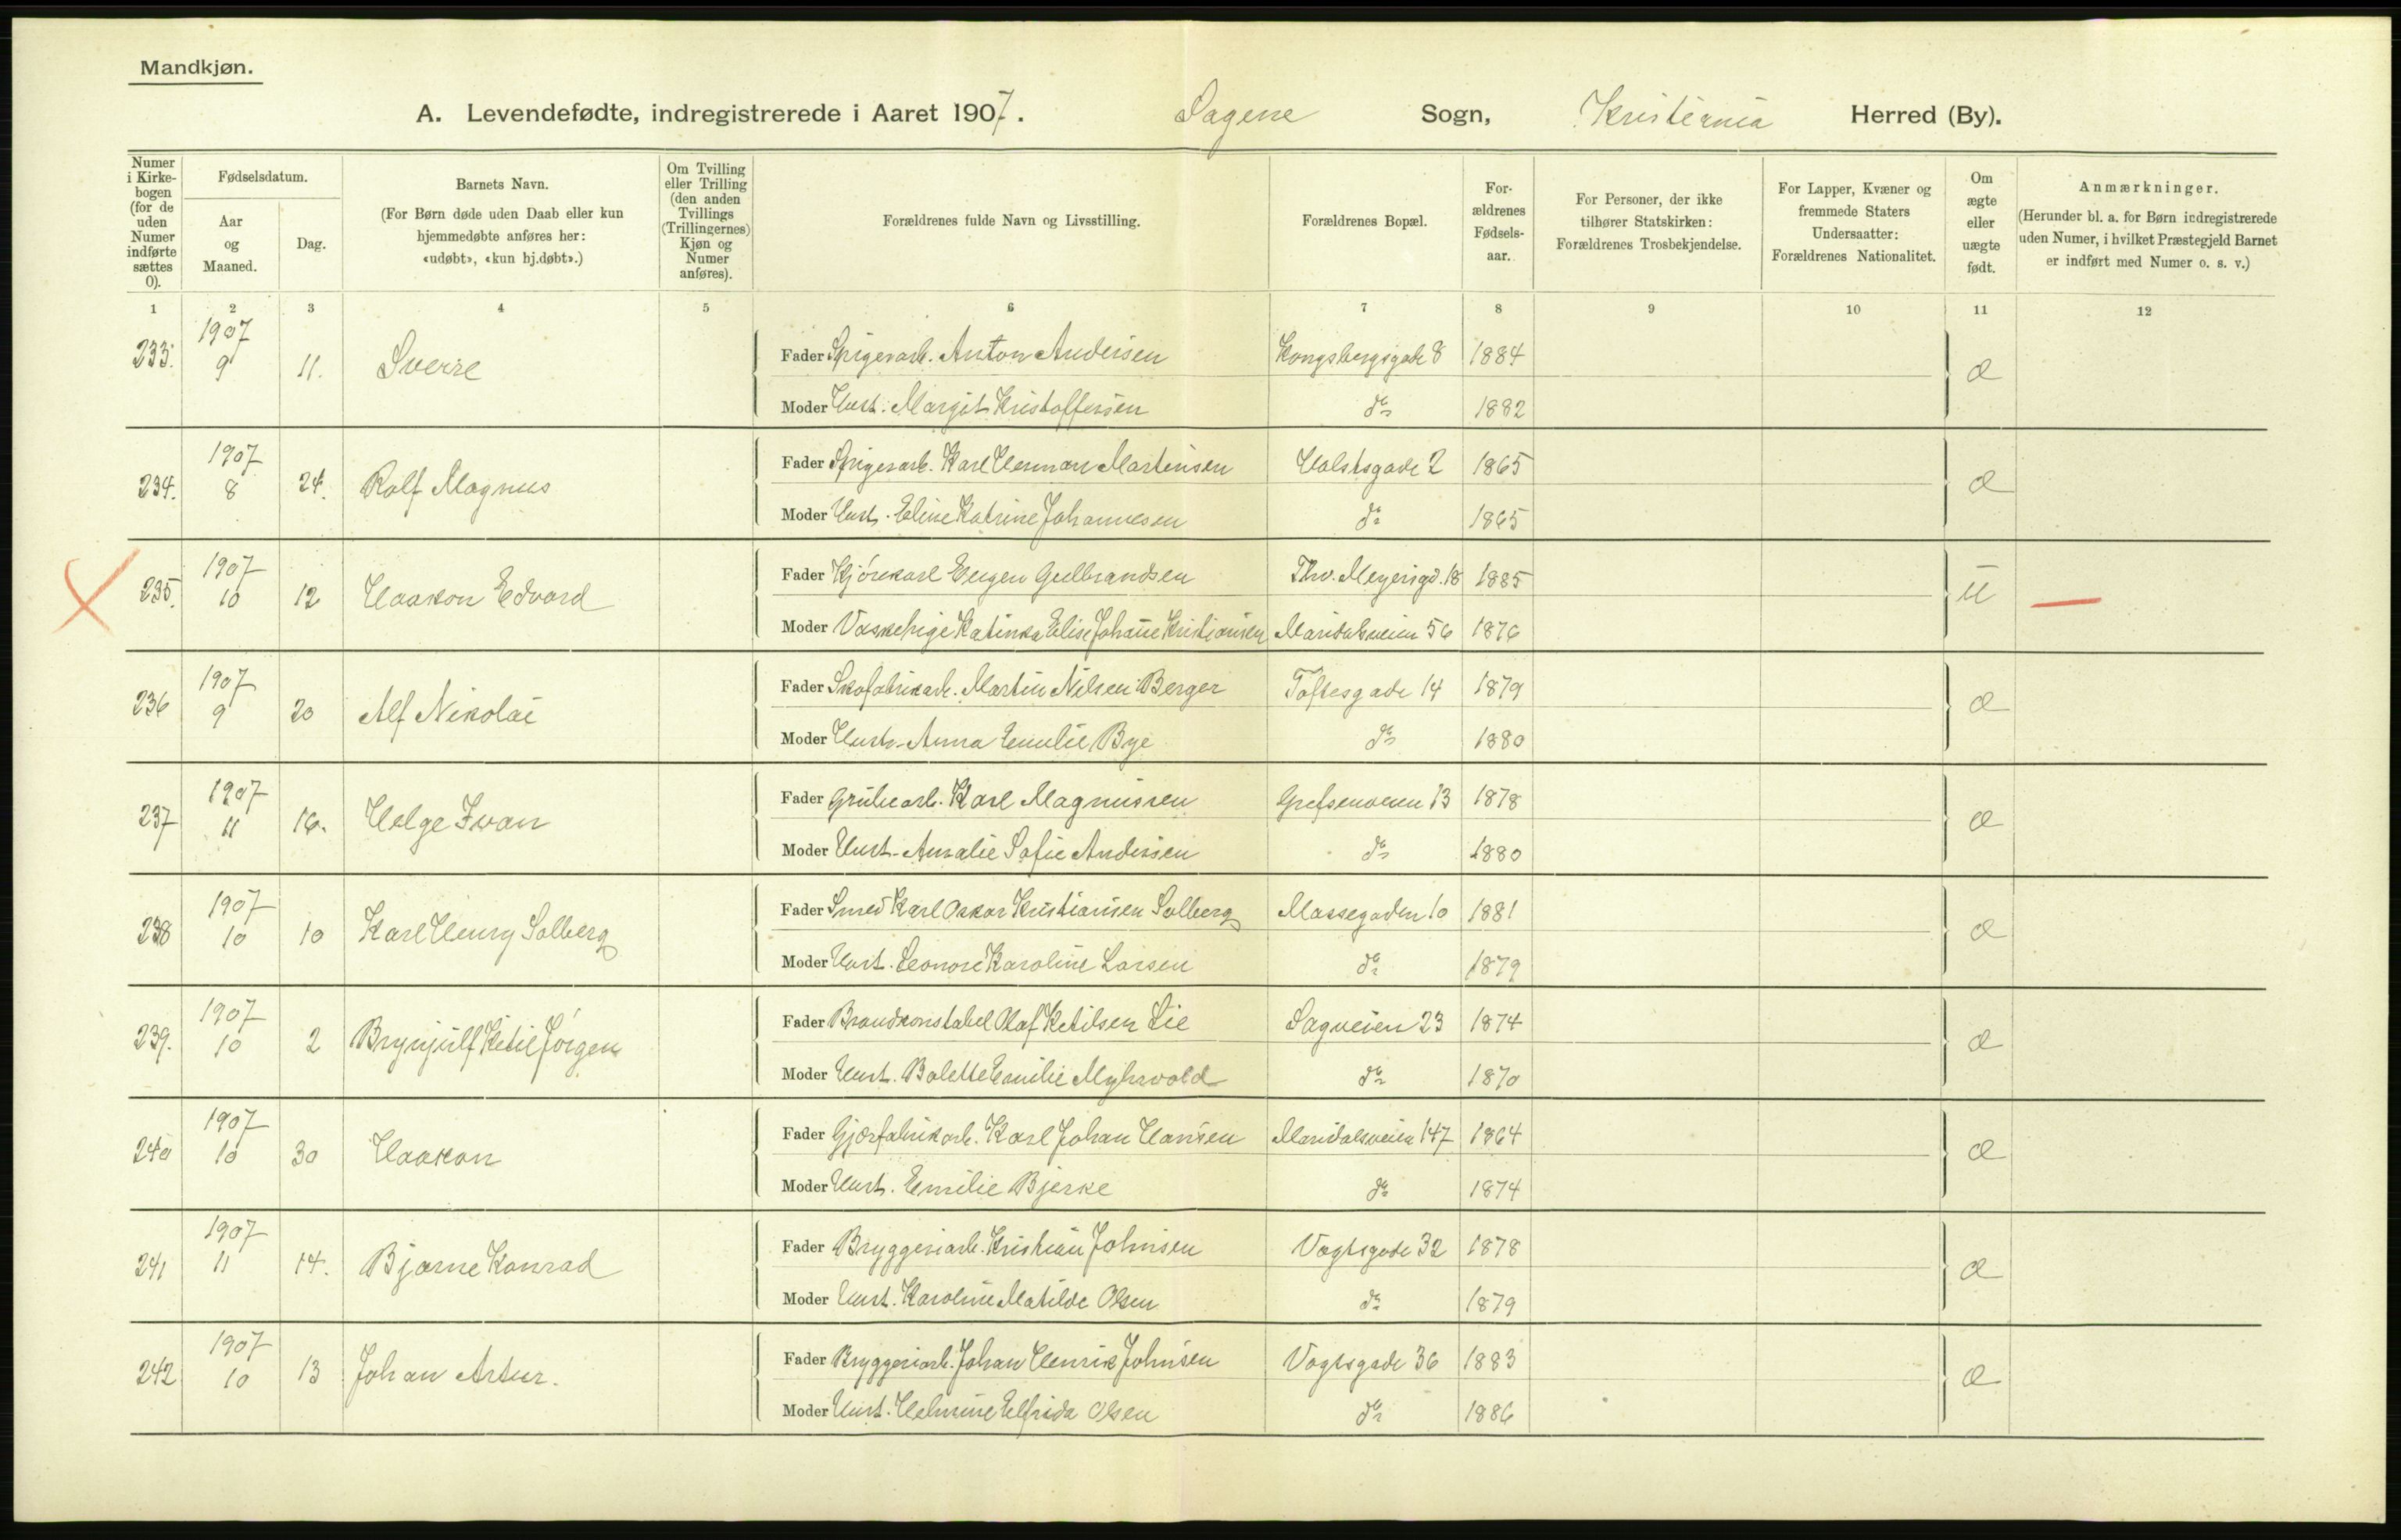 Mandkjøn.
A. Levendefødte, indregistrerede i Aaret 1907. Sagene Sogn, Kristiania Herred (By).
Numer i Kirkebogen (for de uden Numer indførte sættes 0).
Fødselsdatum.
Aar og Maaned.
Dag.
Barnets Navn.
(For Børn døde uden Daab eller kun hjemmedøbte anføres her: «udøbt», «kun hj.døbt».)
Om Tvilling eller Trilling (den anden Tvillings (Trillingernes) Kjøn og Numer anføres).
Forældrenes fulde Navn og Livsstilling.
Forældrenes Bopæl.
Forældrenes Fødselsaar.
For Personer, der ikke tilhører Statskirken: Forældrenes Trosbekjendelse.
For Lapper, Kvæner og fremmede Staters Undersaatter: Forældrenes Nationalitet.
Om ægte eller uægte født.
Anmærkninger.
(Herunder bl. a. for Børn indregistrerede uden Numer, i hvilket Præstegjeld Barnet er indført med Numer o. s. v.)
1 2 3 4 5 6 7 8 9 10 11 12
233. 1907 9 11. Sverre Fader Spigerarb. Anton Andersen Kongsbergsgade 8 1884 æ
Moder Hust. Margit Kristoffersen do 1882
234. 1907 8 24. Rolf Magnus Fader Spigerarb. Karl Herman Martinsen Holstsgade 2 1865 æ
Moder Hust. Eline Katrine Johannesen do 1865
235. 1907 10 12 Haakon Edvard Fader Kjørekarl Eugen Gulbrandsen Thv. Meyersgd. 18 1885 U
Moder Vaskepige Katinka Elise Johanne Kristiansen Maridalsveien 56 1876
236 1907 9 20 Alf Nikolai Fader Skofabrikarb. Martin Nilsen Berger Toftesgade 14 1879 æ
Moder Hust. Anna Emilie Bye do 1880
237 1907 11 16. Helge Ivan Fader Grubearb. Karl Magnussen Grefsenveien 13 1878 æ
Moder Hust. Amalie Sofie Andersen do 1880
238 1907 10 10 Karl Henry Solberg Fader Smed Karl Oskar Kristiansen Solberg Mossegaden 10 1881 æ
Moder Hust. Leonore Karoline Larsen do 1879
239. 1907 10 2 Brynjulf Ketil Jørgen Fader Brandkonstabel Olaf Ketilsen Lie Sagveien 23 1874 æ
Moder Hust. Bolette Emilie Myhrvold do 1870
240 1907 10 30 Haakon Fader Gjærfabrikarb. Karl Johan Hansen Maridalsveien 147 1864 æ
Moder Hust. Emilie Bjerke do 1874
241 1907 11 14. Bjarne Konrad Fader Bryggeriarb. Kristian Johnsen Vogtsgade 32 1878 æ
Moder Hust. Karoline Matilde Olsen do 1879
242 1907 10 13 Johan Artur. Fader Bryggeriarb. Johan Henrik Johnsen Vogtsgade 36 1883 æ
Moder Hust. Helmine Elfrida Olsen do 1886